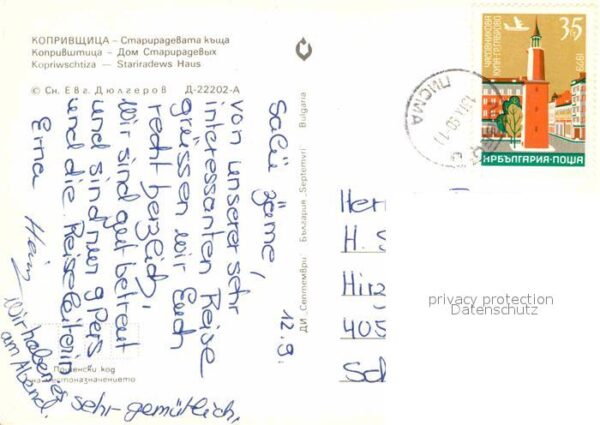 КОПРИВЩИЦА – Старирадевата къща
Копривштица – Дом Старирадевых
Kopriwschtiza — Stariradews Haus
© Сн. Евг. Дюлгеров Д-22202-А
12.9.
Salü zäme,
von unserer sehr
interessanten Reise
grüssen wir Euch
recht herzlich,
wir sind gut betreut
und sind nur 9 Pers
und die Reiseleiterin
Erna Heinz
wir haben es
am Abend
sehr gemütlich.
Пощенски код
на местоназначението
ДИ „Септември" България „Septemvri" Bulgaria
35
1879
НР БЪЛГАРИЯ · ПОЩА
ПИСМА
Herr
H. S
Hirz
405
Sch
privacy protection
Datenschutz